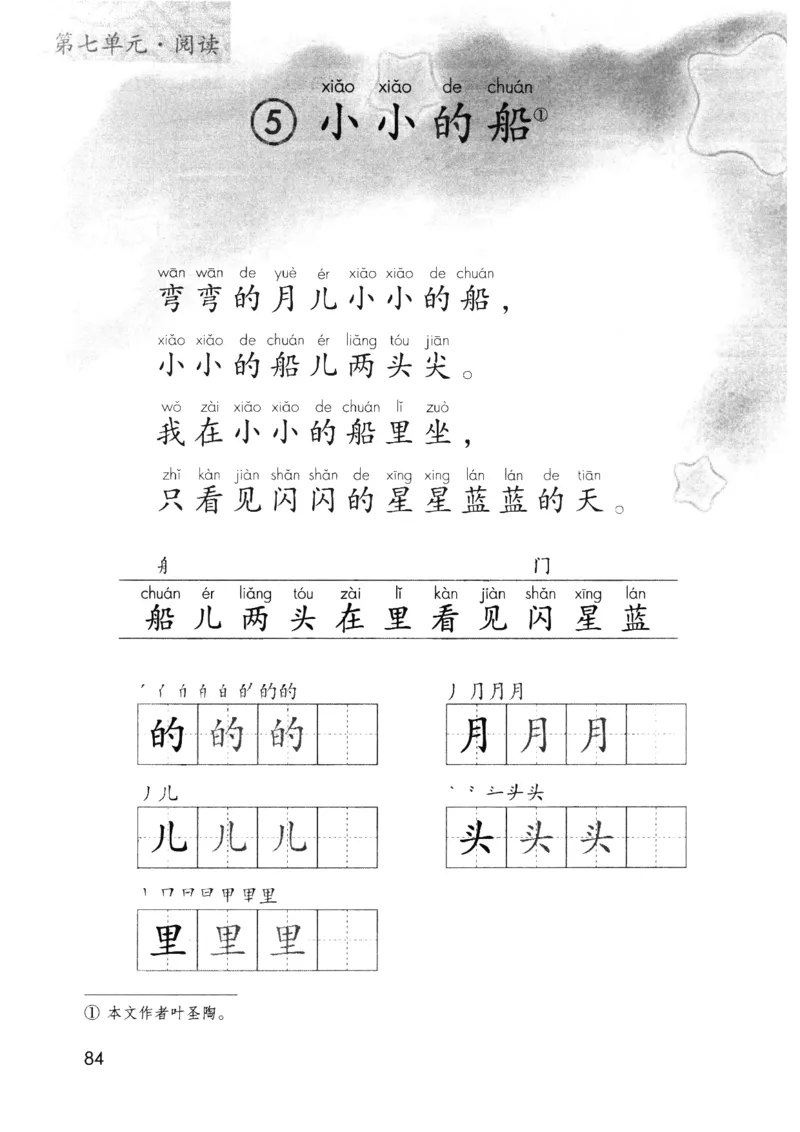 第七单元·阅读
xiǎo xiǎo de chuán
⑤ 小小的船①
wān wān de yuè ér xiǎo xiǎo de chuán
弯弯的月儿小小的船，
xiǎo xiǎo de chuán ér liǎng tóu jiān
小小的船儿两头尖。
wǒ zài xiǎo xiǎo de chuán lǐ zuò
我在小小的船里坐，
zhǐ kàn jiàn shǎn shǎn de xīng xing lán lán de tiān
只看见闪闪的星星蓝蓝的天。
舟 门
chuán ér liǎng tóu zài lǐ kàn jiàn shǎn xīng lán
船儿两头在里看见闪星蓝
的的的
月月月
儿儿儿
头头头
里里里
① 本文作者叶圣陶。
84